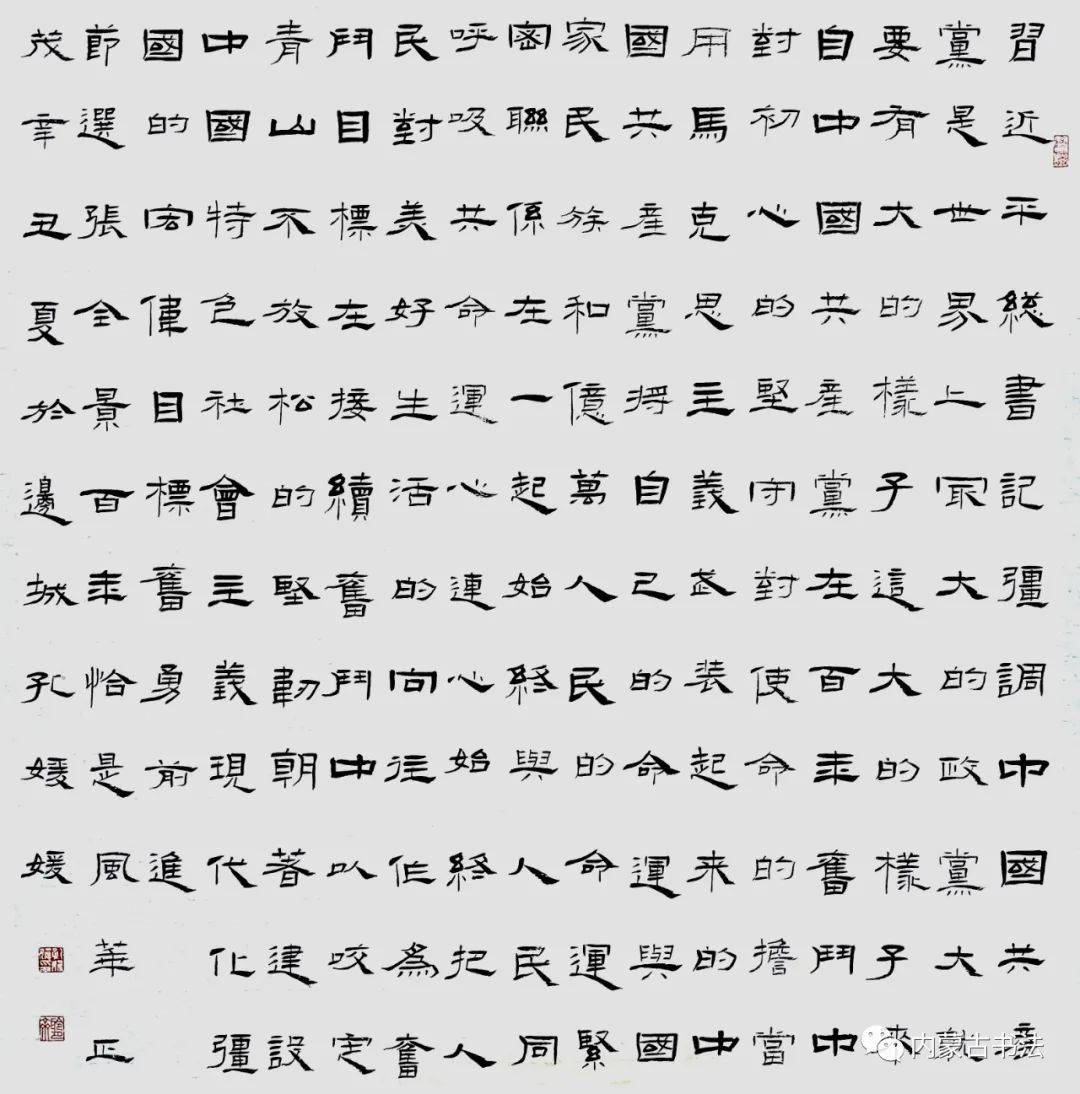 習近平総書記彊調中國共産
黨是世界上冣大的政黨大就
要有大的樣子這大的樣子来
自中國共産黨在百年奮鬥中
對初心的堅守對使命的擔當
用馬克思主義武装起来的中
國共産黨将自己的命運與國
家民族和億萬人民的命運緊
密聯係在一起始終與人民同
呼吸共命運心連心始終把人
民對美好生活的向往作為奮
鬥目標在接續奮鬥中以咬定
青山不放松的堅韌朝著建設
中國特色社會主義現代化彊
國的宏偉目標奮勇前進
節選張全景百年恰是風華正
茂辛丑夏於邊城孔媛媛
内蒙古书法